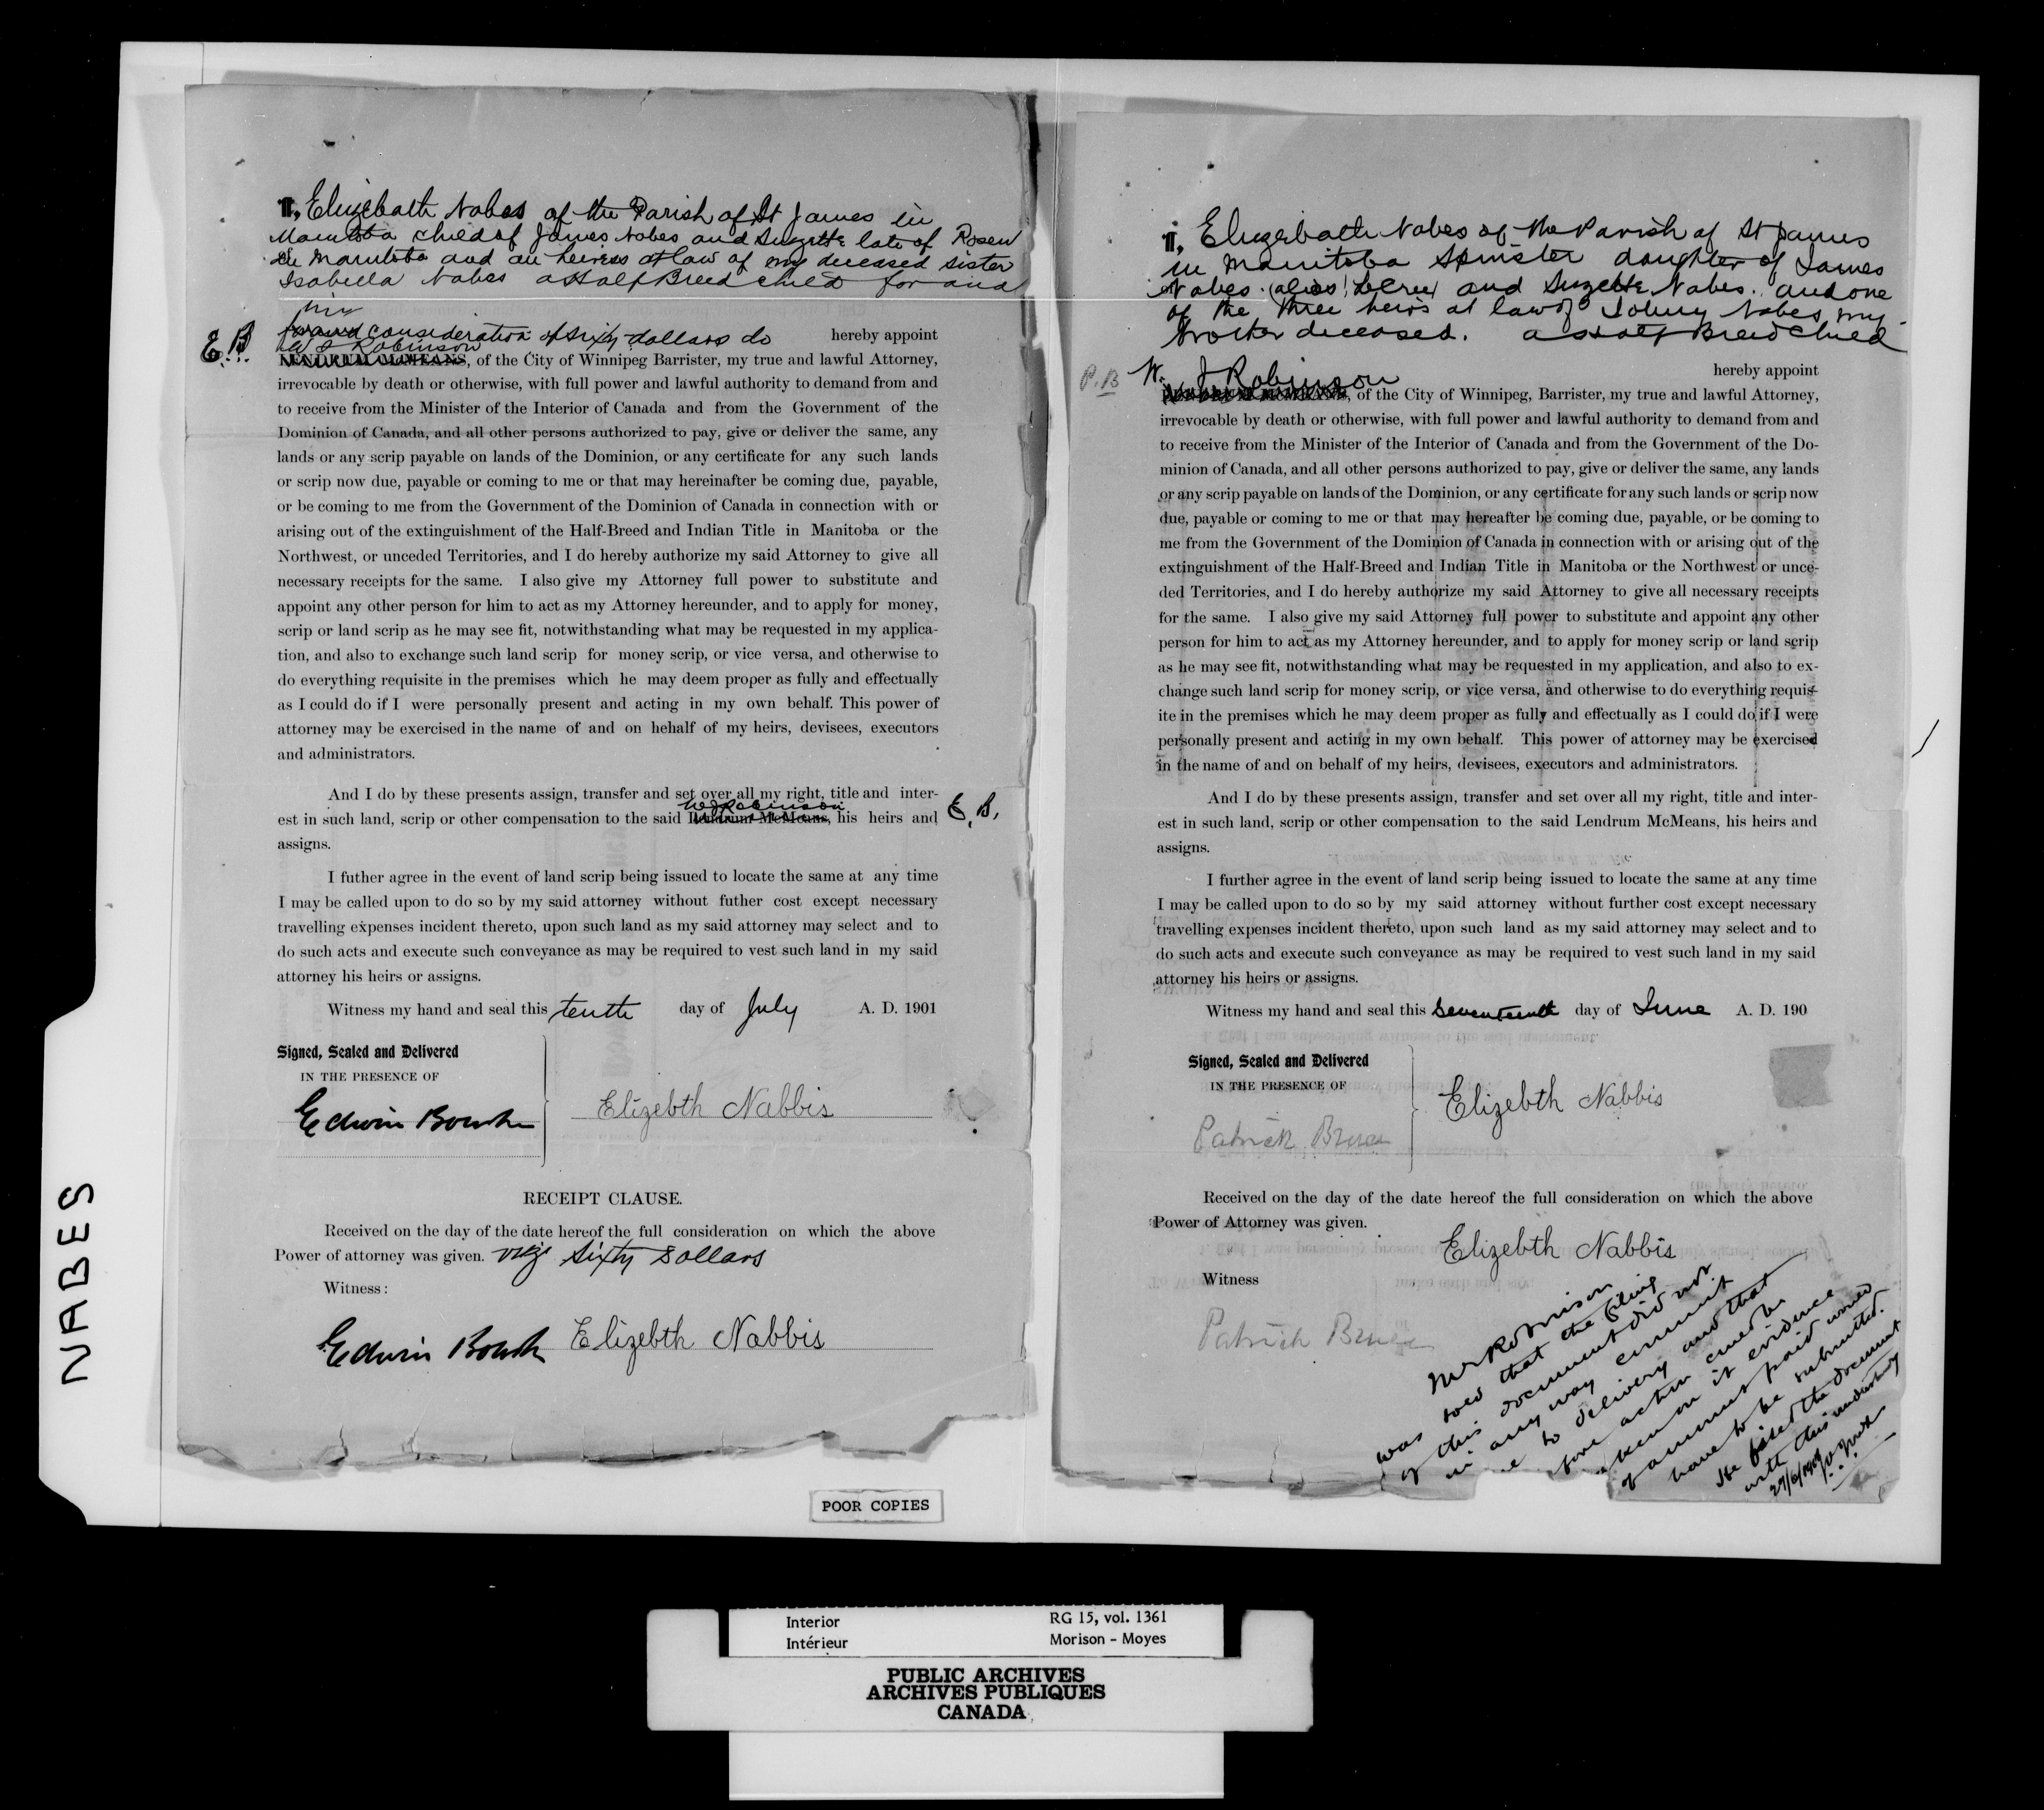 I, Elizebath Nabes of the Parish of St James in
Manitoba child of James Nabes and Suzette late of Roseau
in Manitoba and an heiress at law of my deceased sister
Isabella Nabes a Half Breed child for and
in
consideration of sixty dollars do hereby appoint
E.B. W J Robinson
LENDRUM McMEANS, of the City of Winnipeg Barrister, my true and lawful Attorney,
irrevocable by death or otherwise, with full power and lawful authority to demand from and
to receive from the Minister of the Interior of Canada and from the Government of the
Dominion of Canada, and all other persons authorized to pay, give or deliver the same, any
lands or any scrip payable on lands of the Dominion, or any certificate for any such lands
or scrip now due, payable or coming to me or that may hereinafter be coming due, payable,
or be coming to me from the Government of the Dominion of Canada in connection with or
arising out of the extinguishment of the Half-Breed and Indian Title in Manitoba or the
Northwest, or unceded Territories, and I do hereby authorize my said Attorney to give all
necessary receipts for the same. I also give my Attorney full power to substitute and
appoint any other person for him to act as my Attorney hereunder, and to apply for money,
scrip or land scrip as he may see fit, notwithstanding what may be requested in my applica-
tion, and also to exchange such land scrip for money scrip, or vice versa, and otherwise to
do everything requisite in the premises which he may deem proper as fully and effectually
as I could do if I were personally present and acting in my own behalf. This power of
attorney may be exercised in the name of and on hehalf of my heirs, devisees, executors
and administrators.
And I do by these presents assign, transfer and set over all my right, title and inter-
W J Robinson
est in such land, scrip or other compensation to the said Lendrum McMeans, his heirs and E.B.
assigns.
I futher agree in the event of land scrip being issued to locate the same at any time
I may be called upon to do so by my said attorney without futher cost except necessary
travelling expenses incident thereto, upon such land as my said attorney may select and to
do such acts and execute such conveyance as may be required to vest such land in my said
attorney his heirs or assigns.
Witness my hand and seal this tenth day of July A. D. 1901
Signed, Sealed and Delivered
IN THE PRESENCE OF
Edwin Bourke Elizebth Nabbis
RECEIPT CLAUSE.
Received on the day of the date hereof the full consideration on which the above
Power of attorney was given. viz sixty dollars
Witness:
Edwin Bourke Elizebth Nabbis
I, Elizebath Nabes of the Parish of St James
in Manitoba Spinster daughter of James
Nabes (alias) and Suzette Nabes. and one
of the three heirs at law of Johnny Nabes my
brother deceased. a Half Breed Child
hereby appoint
P.B W. J Robinson
, of the City of Winnipeg, Barrister, my true and lawful Attorney,
irrevocable by death or otherwise, with full power and lawful authority to demand from and
to receive from the Minister of the Interior of Canada and from the Government of the Do-
minion of Canada, and all other persons authorized to pay, give or deliver the same, any lands
or any scrip payable on lands of the Dominion, or any certificate for any such lands or scrip now
due, payable or coming to me or that may hereafter be coming due, payable, or be coming to
me from the Government of the Dominion of Canada in connection with or arising out of the
extinguishment of the Half-Breed and Indian Title in Manitoba or the Northwest or unce-
ded Territories, and I do hereby authorize my said Attorney to give all necessary receipts
for the same. I also give my said Attorney full power to substitute and appoint any other
person for him to act as my Attorney hereunder, and to apply for money scrip or land scrip
as he may see fit, notwithstanding what may be requested in my application, and also to ex-
change such land scrip for money scrip, or vice versa, and otherwise to do everything requis-
ite in the premises which he may deem proper as fully and effectually as I could do if I were
personally present and acting in my own behalf. This power of attorney may be exercised
in the name of and on behalf of my heirs, devisees, executors and administrators.
And I do by these presents assign, transfer and set over all my right, title and inter-
est in such land, scrip or other compensation to the said Lendrum McMeans, his heirs and
assigns.
I further agree in the event of land scrip being issued to locate the same at any time
I may be called upon to do so by my said attorney without further cost except necessary
travelling expenses incident thereto, upon such land as my said attorney may select and to
do such acts and execute such conveyance as may be required to vest such land in my said
attorney his heirs or assigns.
Witness my hand and seal this seventeenth day of June A. D. 190
Signed, Sealed and Delivered
IN THE PRESENCE OF
Patrick Bruce Elizebth Nabbis
Received on the day of the date hereof the full consideration on which the above
Power of Attorney was given.
Elizebth Nabbis
Witness
Patrick Bruce
Mr Robinson
was told that the filing
of this document did not
in any way commit
to delivery and that
fore action could be
taken on it evidence
of amount paid would
have to be submitted.
He filed the document
with this understanding
27/6/1901
NABES
POOR COPIES
Interior RG 15, vol. 1361
Intérieur Morison - Moyes
PUBLIC ARCHIVES
ARCHIVES PUBLIQUES
CANADA